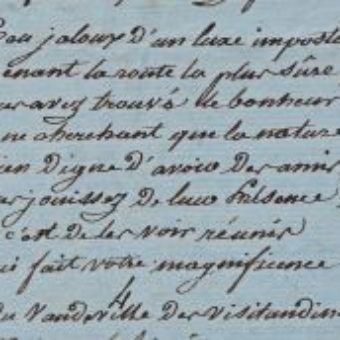 eu jaloux d'un luxe imposte
enant la route la plus sûre
us avez trouvé le bonheur
ne cherchant que la nature
ien digne d'avoir des amis
us jouissez de leur présence
c'est de les voir réunis
ui fait votre magnificence
4
du vaudeville des visitandin